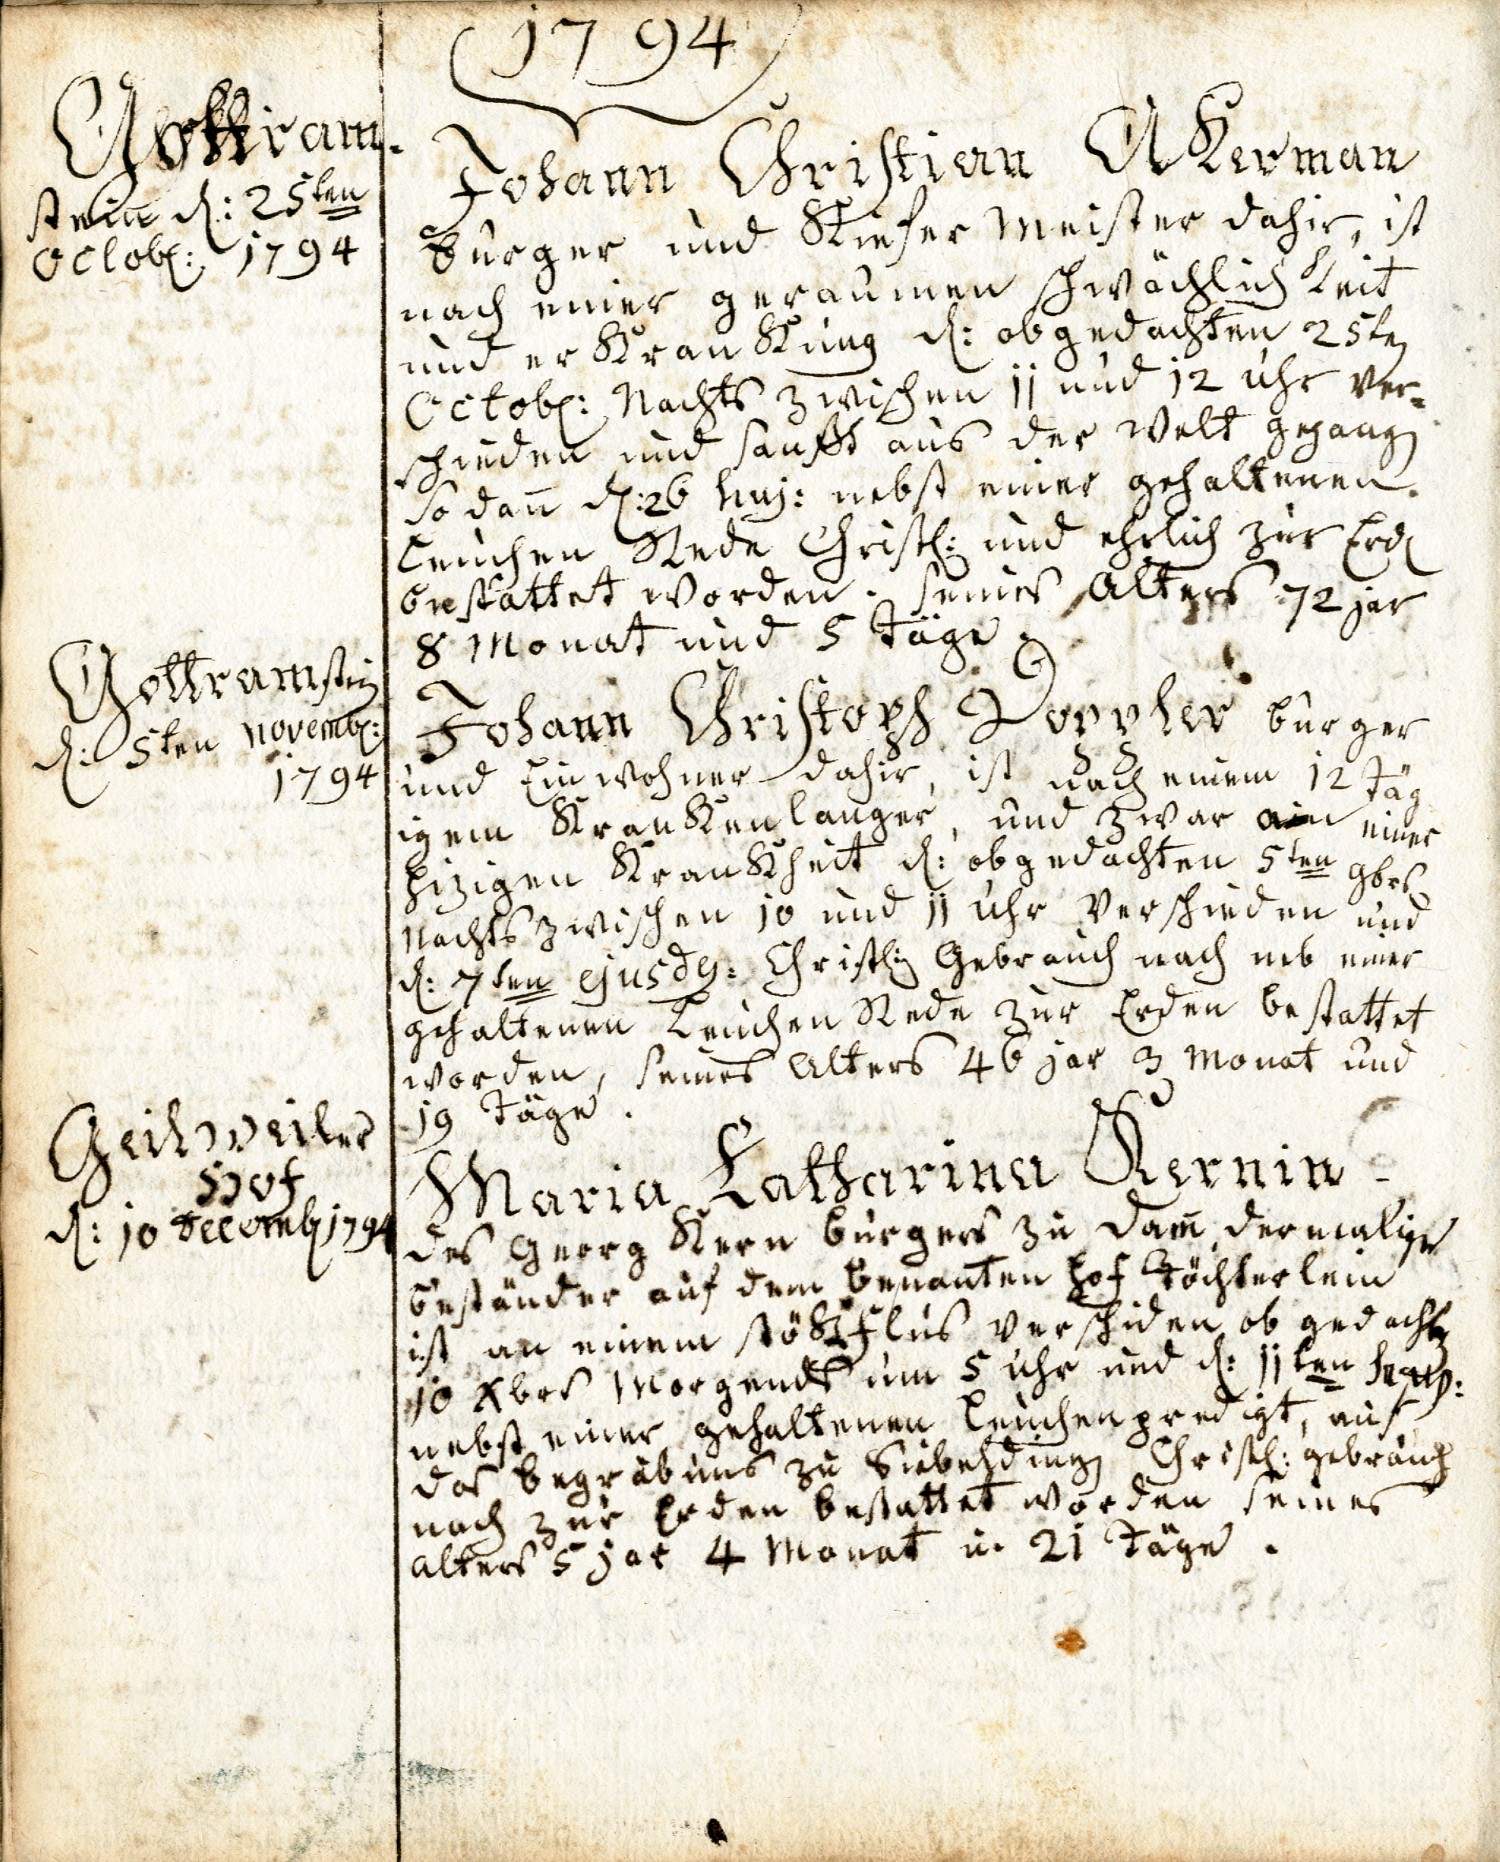 1794
Gottram-
stein d: 25ten
Octob: 1794
Johann Christian AKerman
burger und Kiefer Meister dahir, ist
nach einer geraumen schwächlichkeit
und erkrankung d: obgedachten 25ten
Octob: Nachts zwischen 11 und 12 uhr ver-
schieden und sanfft aus der Welt gegang
so dañ d: 26 huj: nebst einer gehaltenen
Leichen Rede Christl: und ehrlich zur Erd
bestattet worden. seines Alters 72 jar
8 Monat und 5 Täge.
Gottramstein
d: 5ten Novemb:
1794
Johann Christoph Doppler burger
und Einwohner dahir, ist nach einem 12 täg
igem Krankenlanger, und zwar an einer
hizigen Krankheit d: obgedachten 5ten 9brs
Nachts zwischen 10 und 11 uhr verschieden und
d: 7ten ejusd: Christl: Gebrauch nach neb einer
gehaltenen Leichen Rede zur Erden bestattet
worden, seines Alters 46 jar 3 Monat und
19 Täge.
Geilweiler
Hof
d: 10 Decemb 1794
Maria Catharina Kernin
des Georg Kern burgers zu Dam̄ dermalige
beständer auf dem benanten hof Töchterlein
ist an einem stökflus verschiden ob gedacht
10 Xbrs Morgends um 5 uhr und d: 11ten
nebst einer gehaltenen Leichenpredigt, auf
das begräbnus zu Siebelding Christl: gebrauch
nach zur Erden bestattet worden seines
alters 5 jar 4 Monat u. 21 Täge.